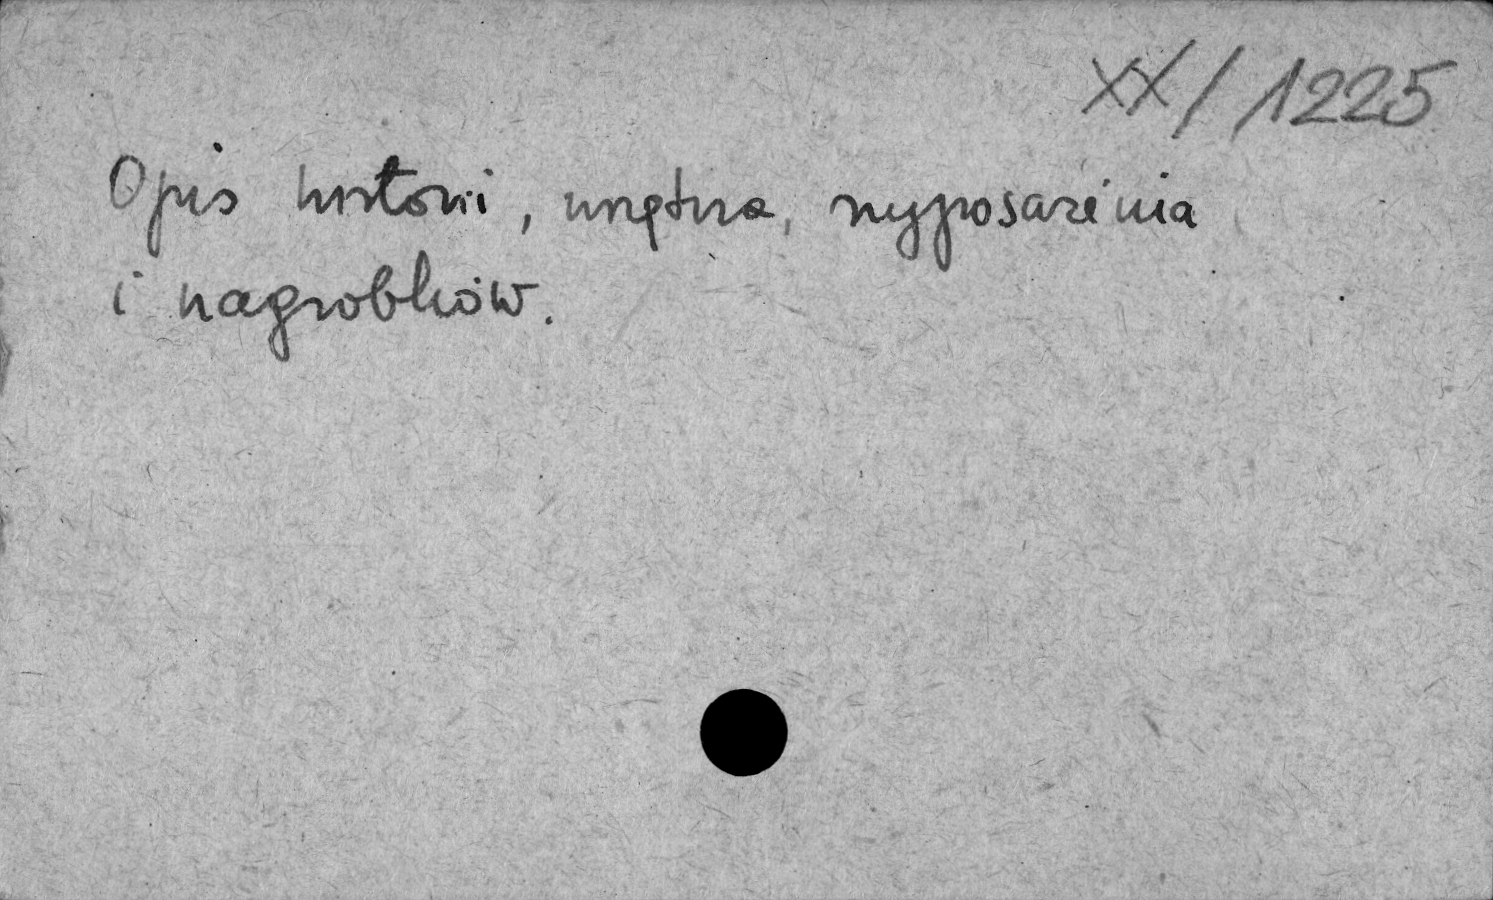 XX/1225
Opis historii, wnętrza, wyposażenia
i nagrobków.